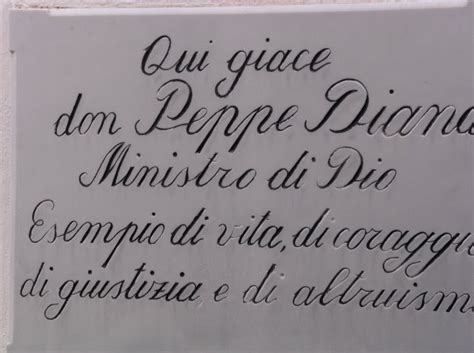 Qui giace
don Peppe Diana
Ministro di Dio
Esempio di vita, di coraggi
di giustizia, e di altruism